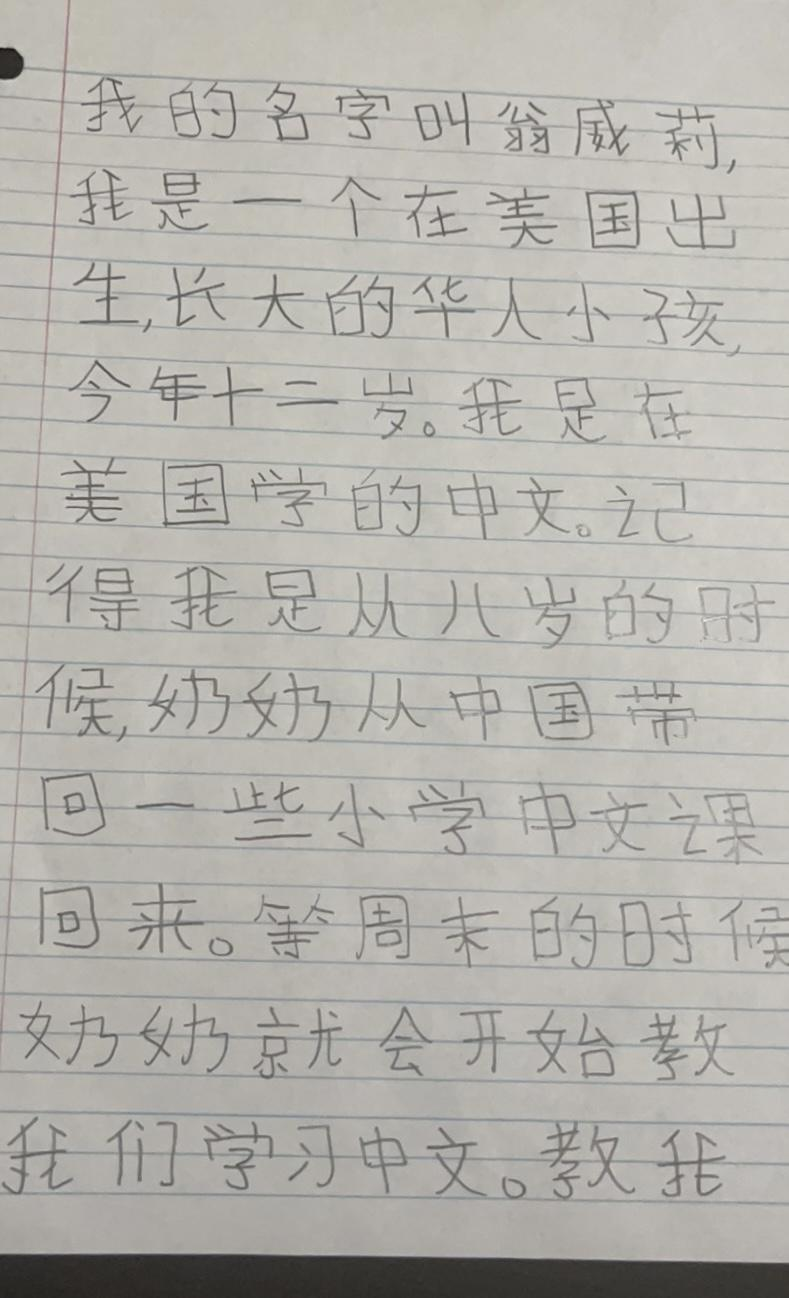 我的名字叫翁威莉,
我是一个在美国出
生,长大的华人小孩,
今年十二岁。我是在
美国学的中文。记
得我是从八岁的时
候,奶奶从中国带
回一些小学中文课
回来。等周末的时候
奶奶就会开始教
我们学习中文。教我